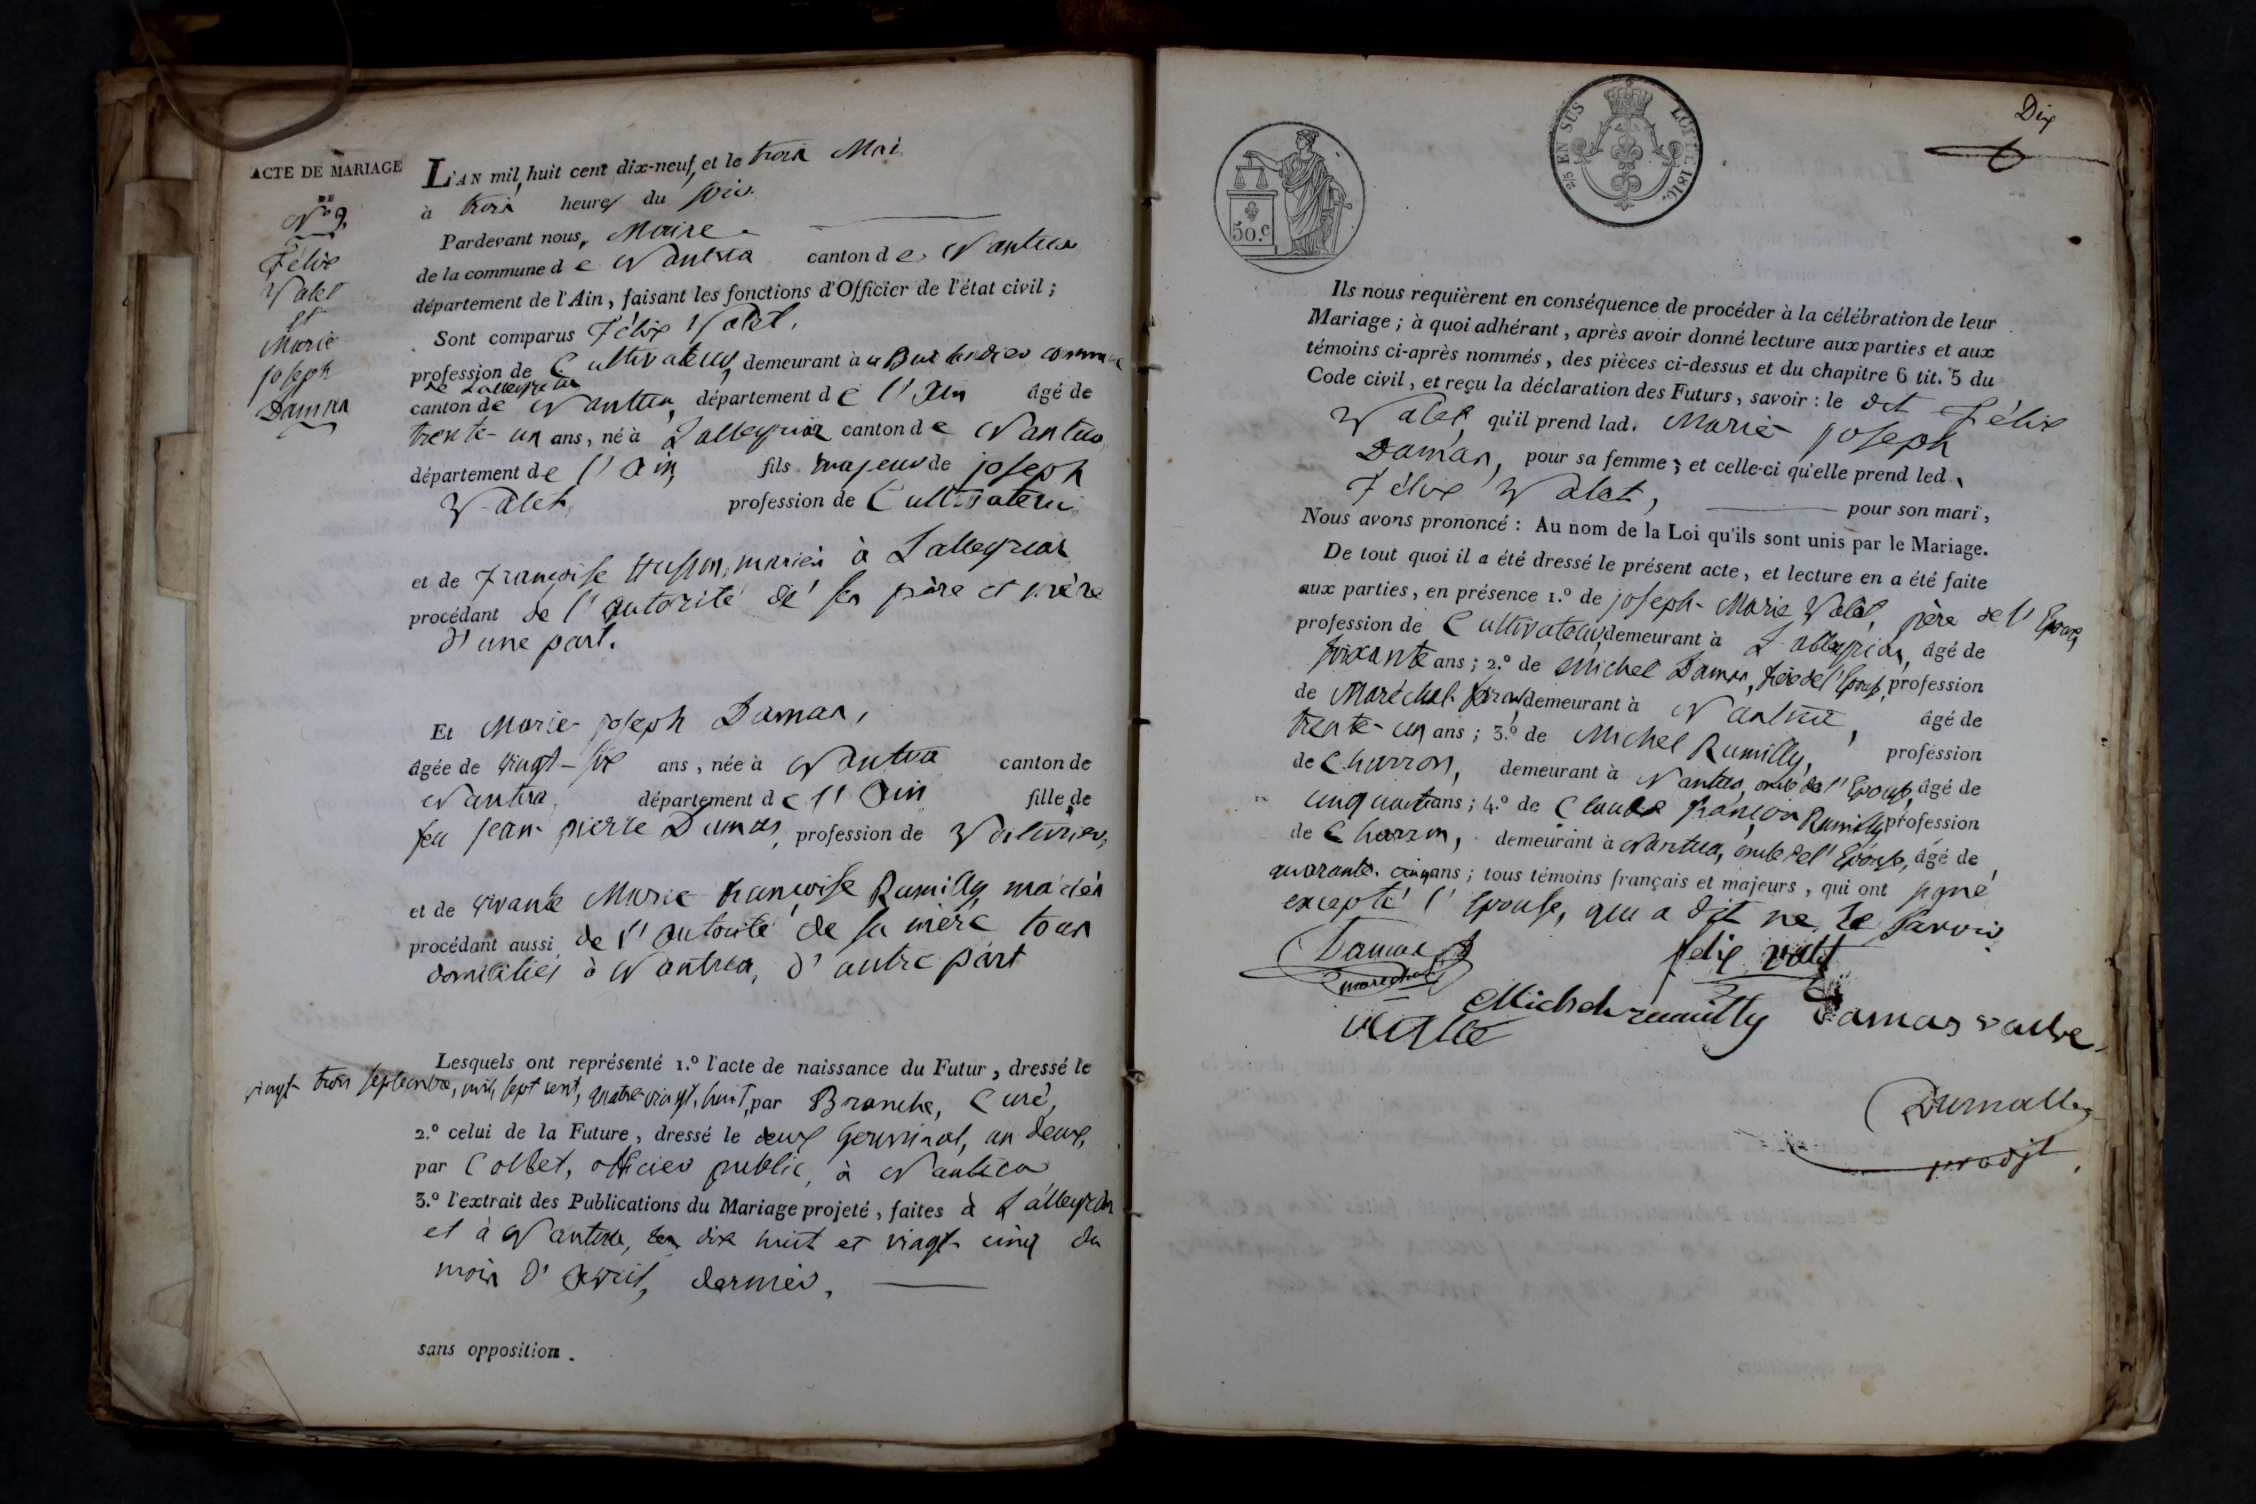 ACTE DE MARIAGE
DE
N.º 9.
Félix
Valet
et
Marie
joseph
Damas
L'AN mil huit cent dix-neuf, et le trois Mai
à trois heures du soir.
Pardevant nous, Maire
de la commune de Nantua canton de Nantua
département de l'Ain, faisant les fonctions d'Officier de l'état civil ;
Sont comparus Félix Valet,
profession de Cultivateur, demeurant à commune
de Lalleyriat
canton de Nantua, département de l'Ain âgé de
trente-un ans, né à Lalleyriat canton de Nantua
département de l'Ain, fils majeur de joseph
Valet, profession de Cultivateur
et de françoise husson, mariés à Lalleyriat
procédant de l'autorité de ses père et mère
d'une part.
Et Marie-joseph Damas,
âgée de vingt-six ans, née à Nantua canton de
Nantua, département de l'Ain fille de
feu jean-pierre Damas, profession de Voiturier,
et de vivante Marie françoise Rumilly, mariés
procédant aussi de l'autorité de sa mère tous
domiciliés à Nantua, d'autre part
Lesquels ont représenté 1.º l'acte de naissance du Futur, dressé le
vingt-trois septembre, mil sept cent, quatre-vingt-huit, par Branche, Curé,
2.º celui de la Future, dressé le deux Germinal, an deux,
par Collet, officier public, à Nantua
3.º l'extrait des Publications du Mariage projeté, faites à Lalleyriat
et à Nantua, les dix huit et vingt-cinq du
mois d'avril, dernier.
sans opposition.
Dix
50.c
2/5 EN SUS
LOI DE 1816.
Ils nous requièrent en conséquence de procéder à la célébration de leur
Mariage ; à quoi adhérant, après avoir donné lecture aux parties et aux
témoins ci-après nommés, des pièces ci-dessus et du chapitre 6 tit. 5 du
Code civil, et reçu la déclaration des Futurs, savoir : le dit Félix
Valet, qu'il prend lad. Marie-joseph
Damas, pour sa femme ; et celle-ci qu'elle prend led.
Félix Valet, pour son mari,
Nous avons prononcé : Au nom de la Loi qu'ils sont unis par le Mariage.
De tout quoi il a été dressé le présent acte, et lecture en a été faite
aux parties, en présence 1.º de joseph-Marie Valet, père de l'Epoux,
profession de Cultivateur, demeurant à Lalleyriat, âgé de
soixante ans ; 2.º de Michel Damas, frère de l'Epouse, profession
de Maréchal-ferrant, demeurant à Nantua, âgé de
trente-un ans ; 3.º de Michel Rumilly, profession
de Charron, demeurant à Nantua, oncle de l'Epouse, âgé de
cinquante ans ; 4.º de Claude françois Rumilly profession
de Charron, demeurant à Nantua, oncle de l'Epouse, âgé de
quarante-cinq ans ; tous témoins français et majeurs, qui ont signé
excepté l'Epouse, qui a dit ne le savoir.
Damas
marechal
felix valet
Michel rumilly
Damas